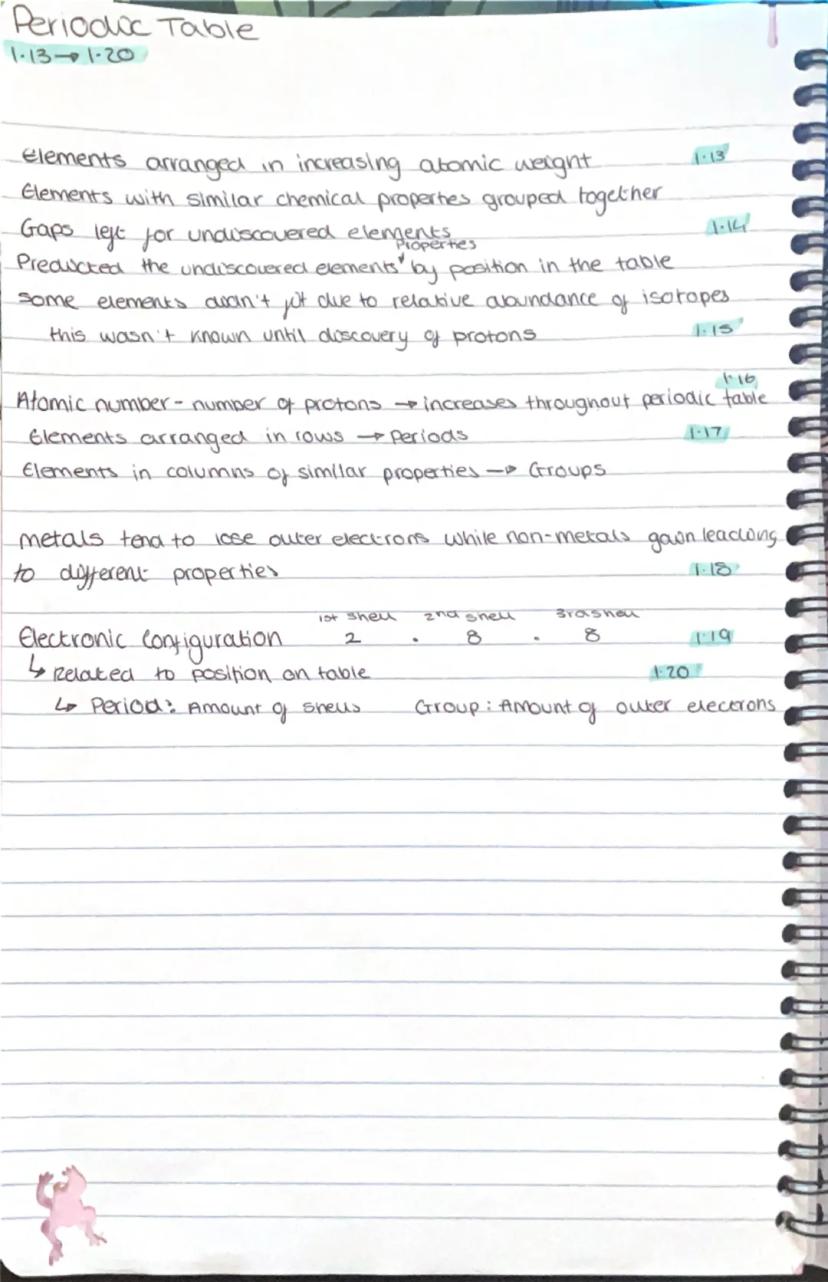 Periodic Table
1.13→1.20
Elements arranged in increasing atomic weight 1.13
Elements with similar chemical properties grouped together
Gaps left for undiscovered elements 1.14
Properties
Predicted the undiscovered elements' by position in the table
some elements didn't fit due to relative abundance of isotopes
this wasn't known until discovery of protons 1.15
1.16
Atomic number - number of protons → increases throughout periodic table
Elements arranged in rows → Periods 1.17
Elements in columns of similar properties → Groups
metals tend to lose outer electrons while non-metals gain leading
to different properties 1.18
1st shell 2nd shell 3rd shell
Electronic Configuration 2 . 8 . 8 1.19
↳ Related to position on table 1.20
↳ Period: Amount of shells Group: Amount of outer electrons